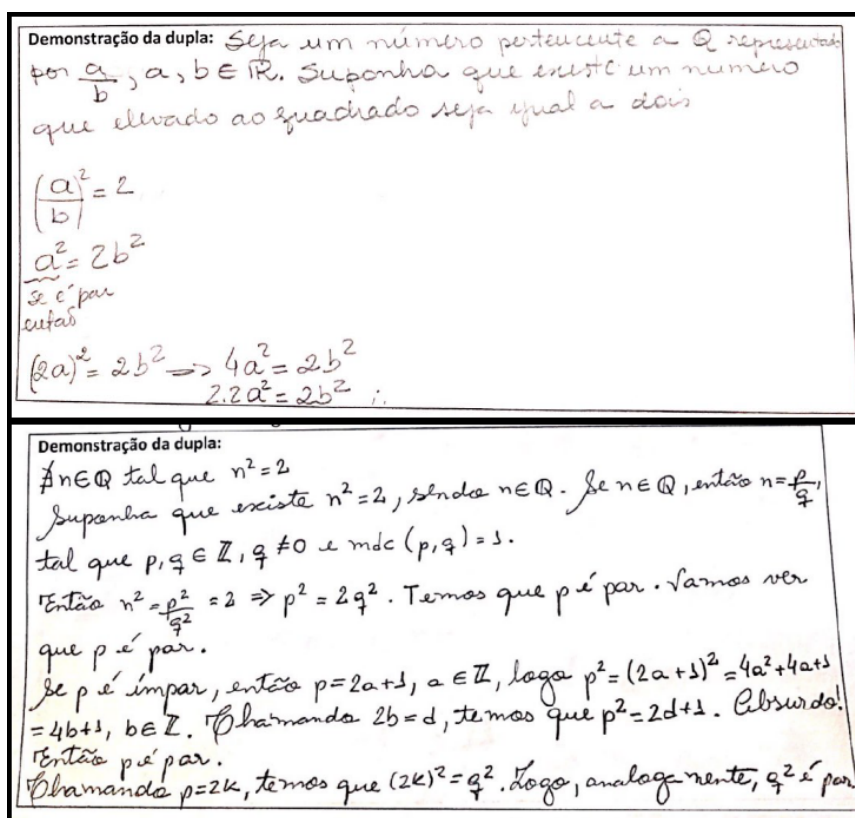 Demonstração da dupla: Seja um número pertencente a Q representado
por a/b, a, b ∈ ℝ. Suponha que existe um numero
que elevado ao quadrado seja igual a dois
(a/b)² = 2
a² = 2b²
se é par
então
(2a)² = 2b² → 4a² = 2b²
2.2a² = 2b² ∴
Demonstração da dupla:
∄ n ∈ ℚ tal que n² = 2
Suponha que existe n² = 2, sendo n ∈ ℚ. Se n ∈ ℚ, então n = p/q,
tal que p, q ∈ ℤ, q ≠ 0 e mdc (p, q) = 1.
Então n² = p²/q² = 2 ⇒ p² = 2q². Temos que p é par. Vamos ver
que p é par.
Se p é ímpar, então p = 2a+1, a ∈ ℤ, logo p² = (2a+1)² = 4a²+4a+1
= 4b+1, b ∈ ℤ. Chamando 2b = d, temos que p² = 2d+1. Absurdo!
Então p é par.
Chamando p = 2k, temos que (2k)² = q². Logo, analogamente, q² é par